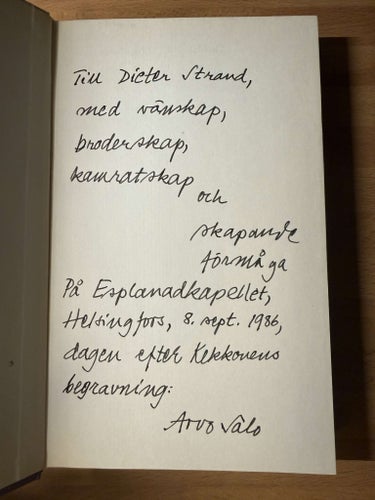 Till Dieter Strand,
med vänskap,
broderskap,
kamratskap
och
skapande
förmåga
På Esplanadkapellet,
Helsingfors, 8. sept. 1986,
dagen efter Kekkonens
begravning:
Arvo Salo